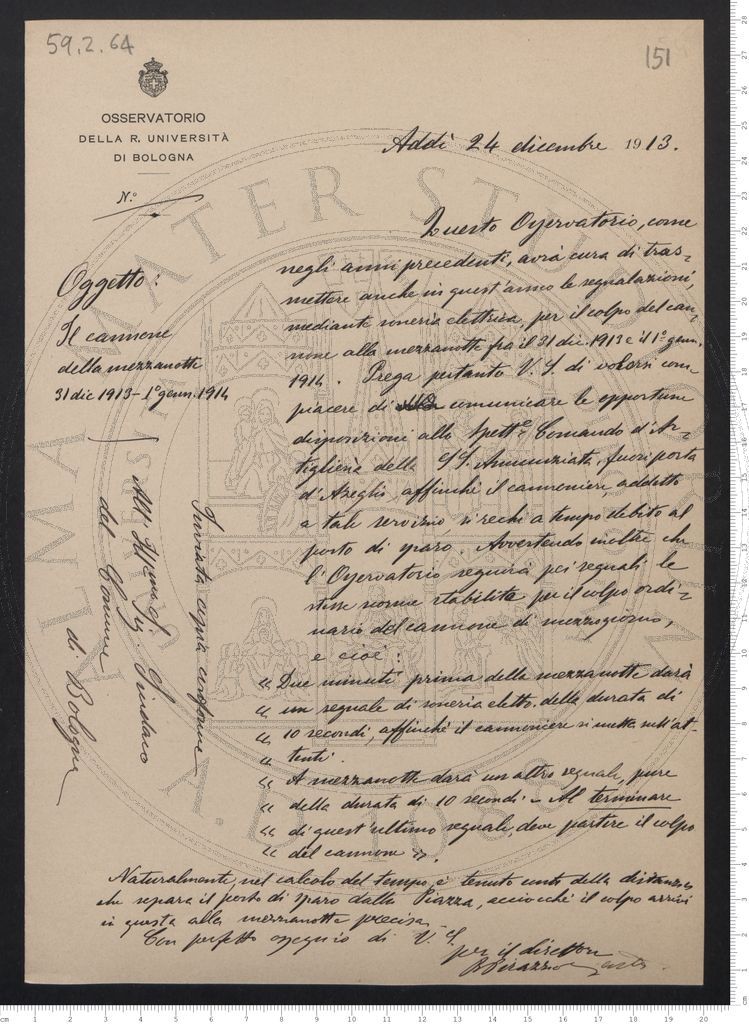 59.2.64
151
OSSERVATORIO
DELLA R. UNIVERSITÀ
DI BOLOGNA
N.º
Addì 24 dicembre 1913.
Oggetto:
Il cannone
della mezzanotte
31 dic 1913 - 1º genn. 1914
Questo Osservatorio, come
negli anni precedenti, avrà cura di tras=
mettere anche in quest'anno le segnalazioni,
mediante soneria elettrica, per il colpo del can=
none alla mezzanotte fra il 31 dic. 1913 e il 1º genn.
1914. Prega pertanto V. S. di volersi com=
piacere di comunicare le opportune
disposizioni allo Spett.e Comando d'Ar=
tiglieria della SS. Annunziata, fuori porta
d'Azeglio, affinchè il cannoniere, addetto
a tale servizio, si rechi a tempo debito al
posto di sparo. Avvertendo inoltre che
l'Osservatorio seguirà pei segnali le
stesse norme stabilite per il colpo ordi=
nario del cannone di mezzogiorno,
e cioè:
« Due minuti prima della mezzanotte darà
« un segnale di soneria elett. della durata di
« 10 secondi, affinchè il cannoniere si metta sull'at-
« tenti.
« A mezzanotte darà un altro segnale, pure
« della durata di 10 secondi. - Al terminare
« di quest'ultimo segnale, deve partire il colpo
« del cannone ».
Naturalmente, nel calcolo del tempo, è tenuto conto della distanza
che separa il posto di sparo dalla Piazza, acciocchè il colpo arrivi
in questa alla mezzanotte precisa.
Con perfetto ossequio di V. S.
per il direttore
Inviata copia conforme
All' Ill.mo Sig. Sindaco
del Comune
di Bologna
ALMA MATER STUDIORUM
A.D. 1088